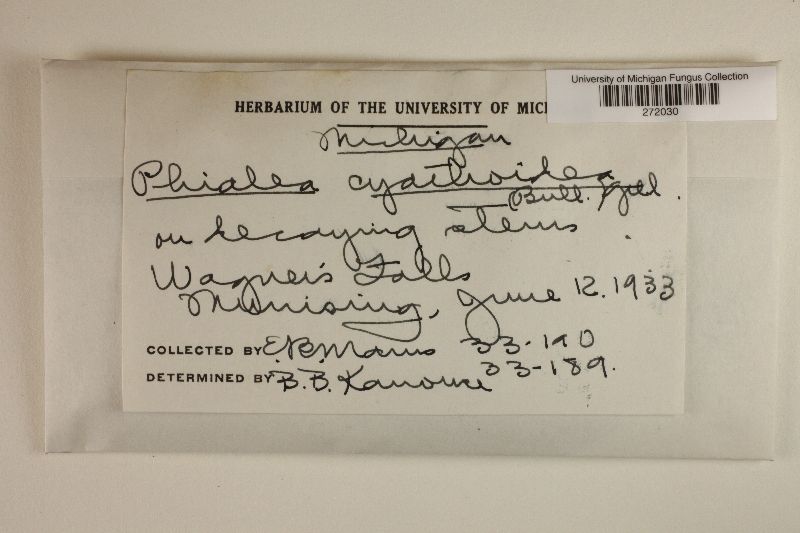 University of Michigan Fungus Collection
272030
HERBARIUM OF THE UNIVERSITY OF MICH
Michigan
Phialea cyathoidea
Bull. Gill.
on decaying stems.
Wagner's Falls
Munising, June 12. 1933
COLLECTED BY E.B. Mains 33-190
33-189.
DETERMINED BY B.B. Kanouse